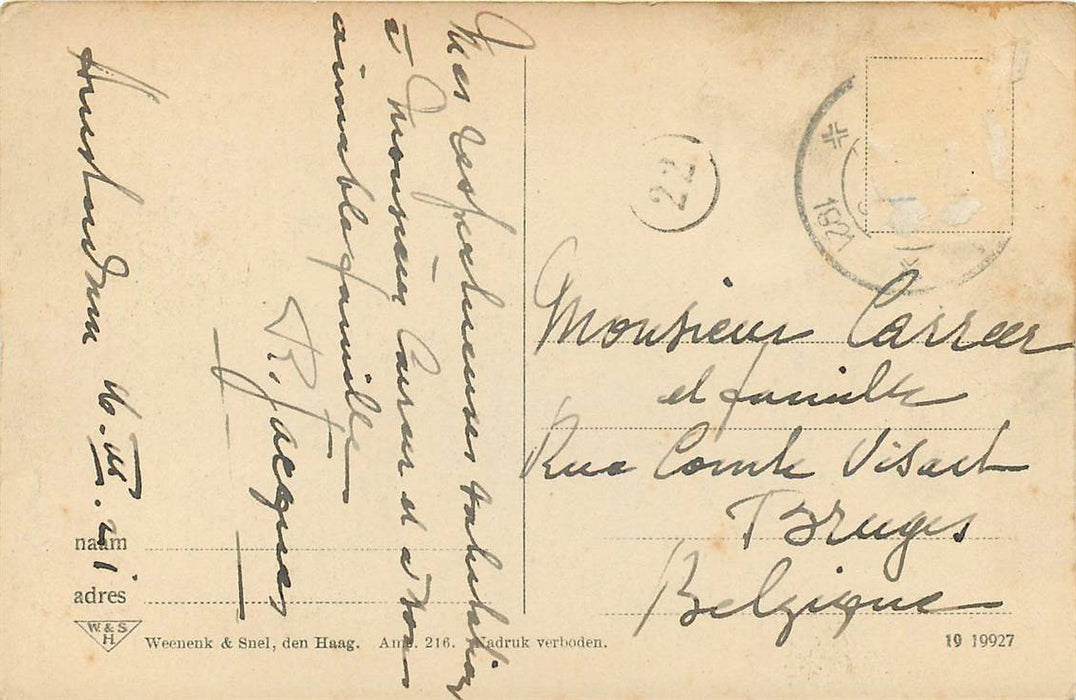 Mes respectueuses salutations
à Monsieur Carreer et à son
aimable famille
R. Jacques
Amsterdam 16.VII.21
22
1921
Monsieur Carreer
et famille
Rue Comte Visart
Bruges
Belgique
naam
adres
W. & S.
H
Weenenk & Snel, den Haag. Ams. 216. Nadruk verboden.
19 19927